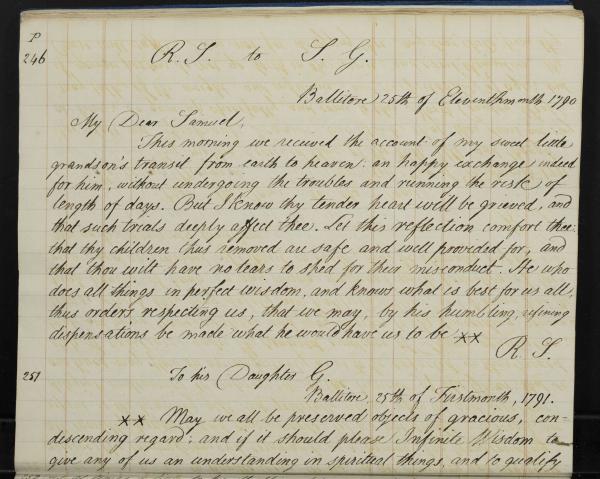 P
246 R. S. to S. G.
Ballitore 25th of Eleventhmonth 1790
My Dear Samuel,
This morning we received the account of my sweet little
grandson's transit from earth to heaven: an happy exchange indeed
for him, without undergoing the troubles and running the risk of
length of days. But I know thy tender heart will be grieved, and
that such trials deeply affect thee. Let this reflection comfort thee:
that thy children thus removed are safe and well provided for, and
that thou wilt have no tears to shed for their misconduct. He who
does all things in perfect wisdom, and knows what is best for us all,
thus orders respecting us, that we may, by his humbling, refining
dispensations be made what he would have us to be xx
R. S.
251 To his Daughter G.
Ballitore, 25th of Firstmonth, 1791.
xx May we all be preserved objects of gracious, con-
discending regard; and if it should please Infinite Wisdom to
give any of us an understanding in spiritual things, and to qualify